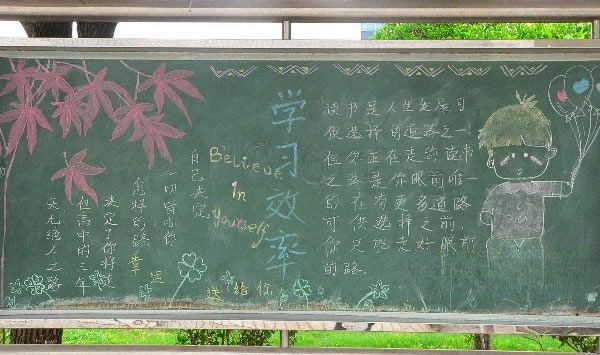 天无绝人之路
但高中的三年
决定了你将走
怎样的路
一切皆由你
自己决定
幸运
送给你
Believe
in
Yourself
学习效率
读书是人生发展可
供选择的道路之一
但你正在走的读书
之路是你眼前唯一
的 在没更多道路
可供选择之前,
你只能走好眼前
的路